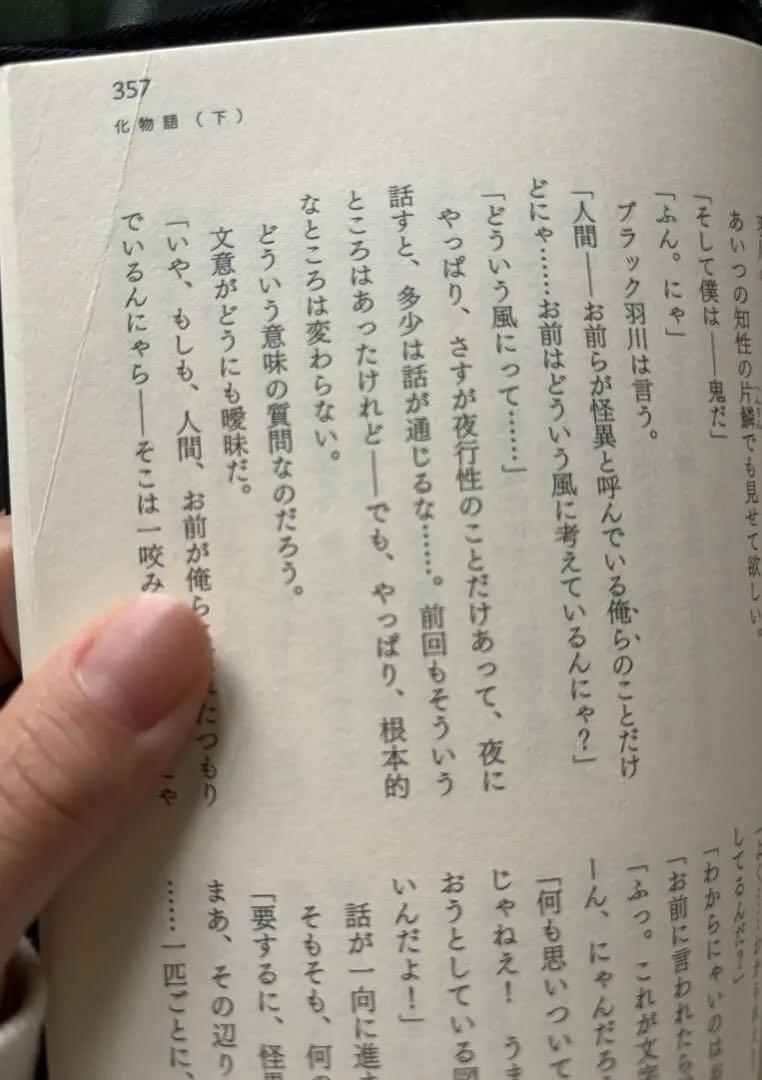 357
化物語（下）
あいつの知性の片鱗でも見せて欲しい。
へんりん
「そして僕は――鬼だ」
「ふん。にゃ」
ブラック羽川は言う。
「人間――お前らが怪異と呼んでいる俺らのことだけ
どにゃ……お前はどういう風に考えているんにゃ？」
「どういう風にって……」
やっぱり、さすが夜行性のことだけあって、夜に
話すと、多少は話が通じるな……。前回もそういう
ところはあったけれど――でも、やっぱり、根本的
なところは変わらない。
どういう意味の質問なのだろう。
文意がどうにも曖昧だ。
「いや、もしも、人間、お前が俺ら たつもり
でいるんにゃら――そこは一咬み にゃ
してるんだ！」
「わからにゃいのはお
「お前に言われたら
「ふっ。これが文字
ーん、にゃんだろ
「何も思いついて
じゃねえ！　うま
おうとしている
いんだよ！」
話が一向に進ま
そもそも、何の
「要するに、怪異
まあ、その辺り
……一匹ごとに、